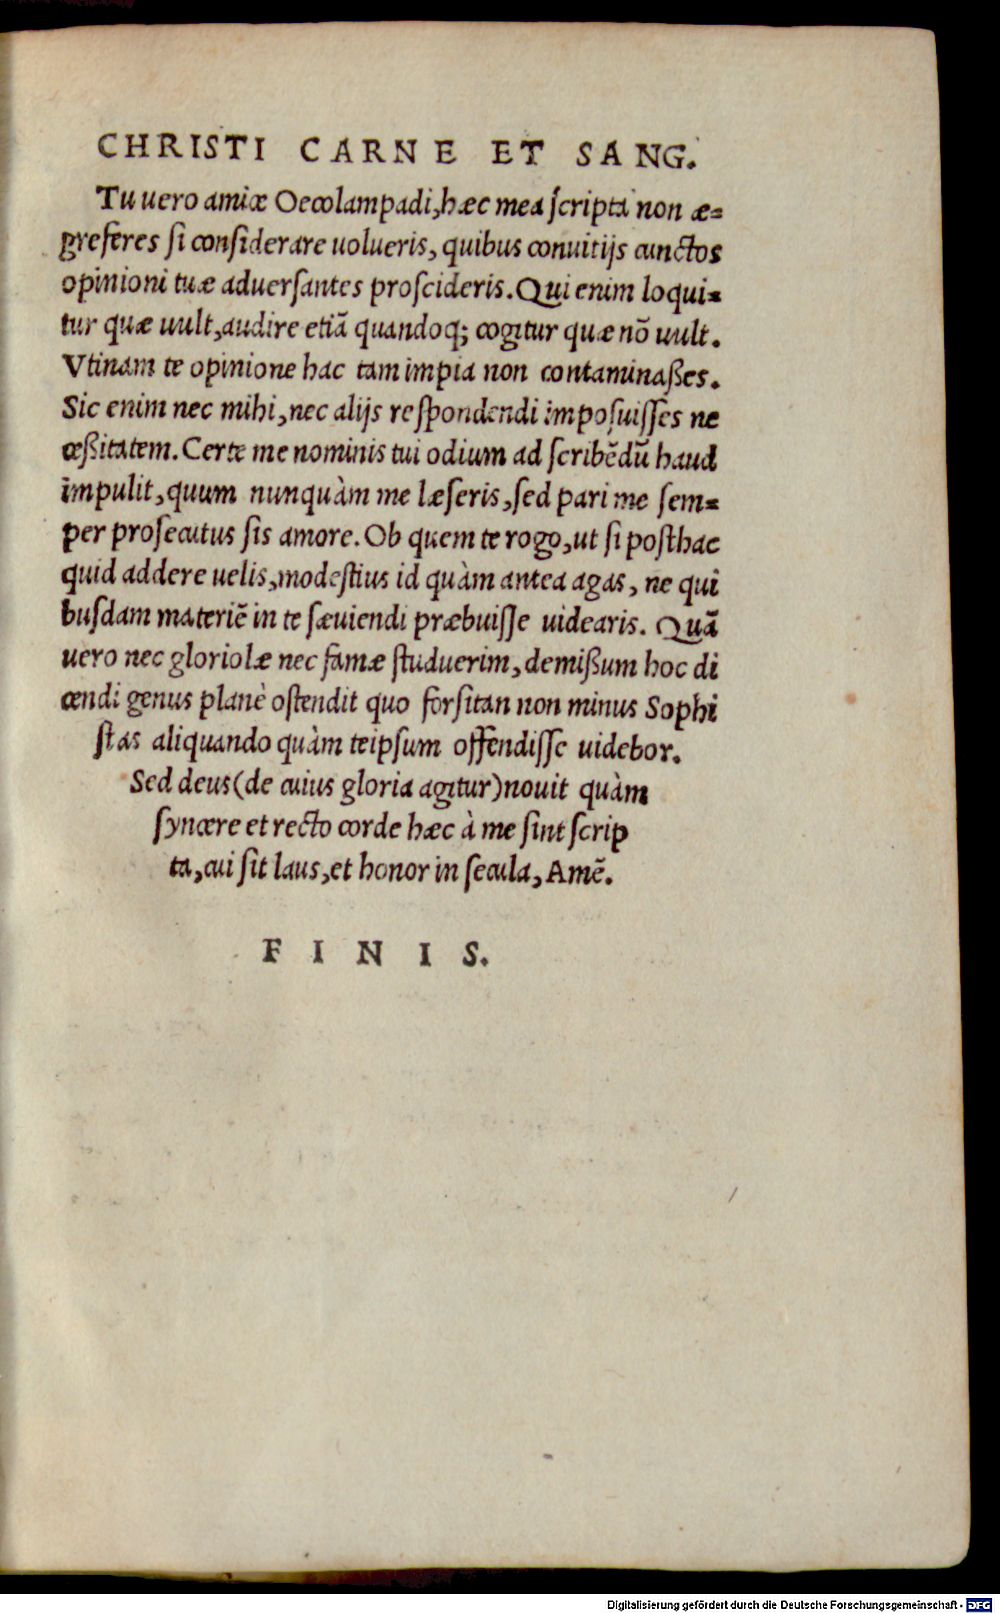 CHRISTI CARNE ET SANG.
Tu uero amice Oecolampadi, hæc mea scripta non æ-
grefères si considerare uolueris, quibus conuitijs cunctos
opinioni tuæ aduersantes proscideris. Qui enim loqui-
tur quæ uult, audire etiã quandoq; cogitur quæ nõ uult.
Vtinam te opinione hac tam impia non contaminaßes.
Sic enim nec mihi, nec alijs respondendi imposuisses ne
ceßitatem. Certe me nominis tui odium ad scribẽdũ haud
impulit, quum nunquàm me læseris, sed pari me sem-
per prosecutus sis amore. Ob quem te rogo, ut si posthac
quid addere uelis, modestius id quàm antea agas, ne qui
busdam materiẽ in te sæuiendi præbuisse uidearis. Quã
uero nec gloriolæ nec famæ studuerim, demißum hoc di
cendi genus planè ostendit quo forsitan non minus Sophi
stas aliquando quàm teipsum offendisse uidebor.
Sed deus (de cuius gloria agitur) nouit quàm
syncere et recto corde hæc à me sint scrip
ta, cui sit laus, et honor in secula, Amẽ.
FINIS.
Digitalisierung gefördert durch die Deutsche Forschungsgemeinschaft - DFG